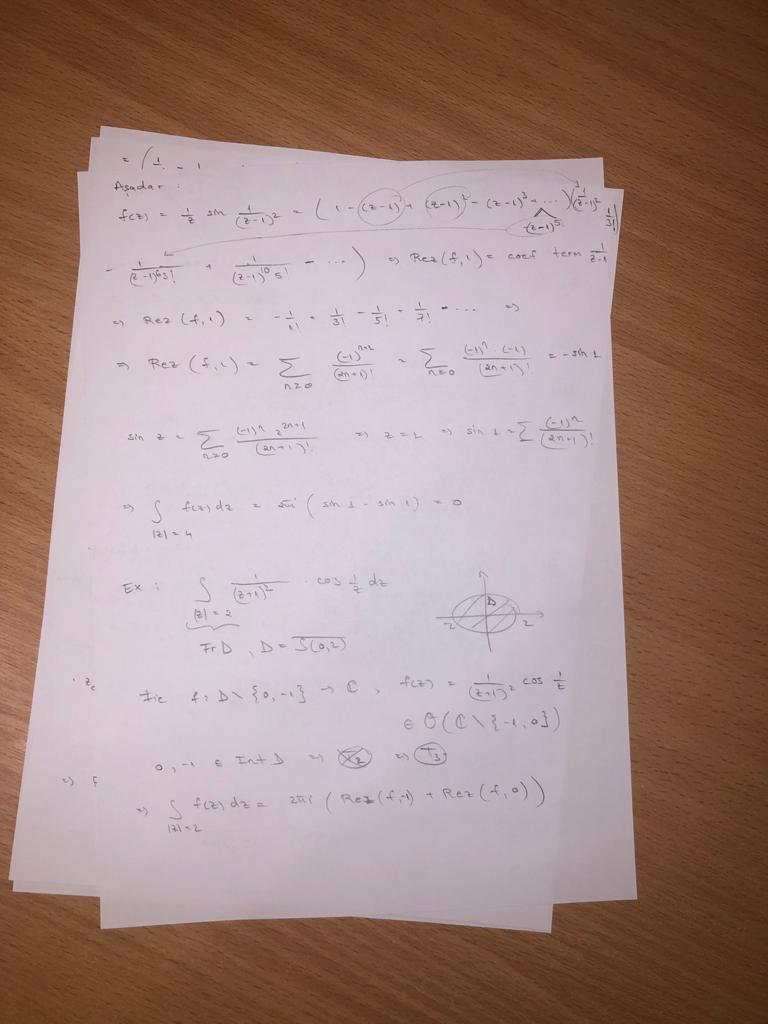 = ( 1
Așadar :
f(z) = 1/z sin 1/(z-1)² = ( 1 - (z-1) + (z-1)² - (z-1)³ + ... ) ( 1/(z-1)²
-(z-1)⁵
- 1/(z-1)⁶3! + 1/(z-1)¹⁰5! - ... ) ⇒ Rez(f,1) = coef term 1/z-1
1/3!
⇒ Rez(f,1) = -1/1! + 1/3! - 1/5! + 1/7! - ... ⇒
⇒ Rez(f,1) = Σ n≥0 (-1)ⁿ⁺¹/(2n+1)! = Σ n≥0 (-1)ⁿ·(-1)/(2n+1)! = -sin 1
sin z = Σ n≥0 (-1)ⁿ z²ⁿ⁺¹/(2n+1)! ⇒ z=1 ⇒ sin 1 = Σ (-1)ⁿ/(2n+1)!
⇒ ∫ |z|=4 f(z) dz = 2πi ( sin 1 - sin 1 ) = 0
Ex : ∫ |z|=2 1/(z+1)² · cos 1/z dz
D
2 2
Fr D , D = S(0,2)
Fie f : D \ {0,-1} → ℂ , f(z) = 1/(z+1)² cos 1/z
∈ O(ℂ \ {-1,0})
0, -1 ∈ Int D ⇒ ⇒ T3
⇒ ∫ |z|=2 f(z) dz = 2πi ( Rez(f,-1) + Rez(f,0) )